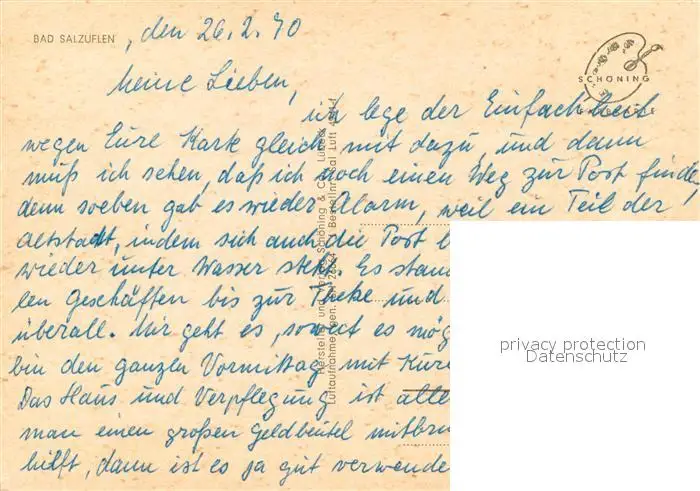 BAD SALZUFLEN , den 26.2.70
SCHÖNING
Meine Lieben,
ich lege der Einfachheit
wegen Eure Karte gleich mit dazu und dann
muß ich sehen, daß ich noch einen Weg zur Post finde,
denn soeben gab es wieder Alarm, weil ein Teil der
Altstadt, indem sich auch die Post b
wieder unter Wasser steht. Es stan
len Geschäften bis zur Theke und
überall. Mir geht es, soweit es mög
bin den ganzen Vormittag mit Kure
Das Haus und Verpflegung ist alle
man einen großen Geldbeutel mitbrin
hilft, dann ist es ja gut verwende
Hersteller und Verlag Schöning & Co.
Luftaufnahme
privacy protection
Datenschutz